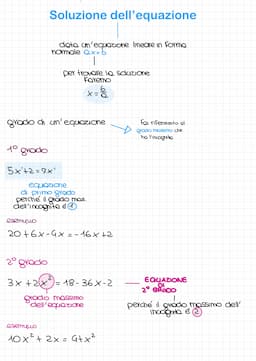 Soluzione dell'equazione
data un'equazione lineare in forma
normale ax=b
per trovare la soluzione
faremo
x = b/a
grado di un'equazione
fa riferimento al
grado massimo che
ha l'incognita
1° grado
5x¹+2=7x¹
equazione
di primo grado
perché il grado max.
dell'incognita è 1
esempio
20+6x-4x=-16x+2
2° grado
3x+2x²=18-36x-2
EQUAZIONE
DI
2° GRADO
grado massimo
dell'equazione
perché il grado massimo dell'
incognita è 2
esempio
10x²+2x=4+x²